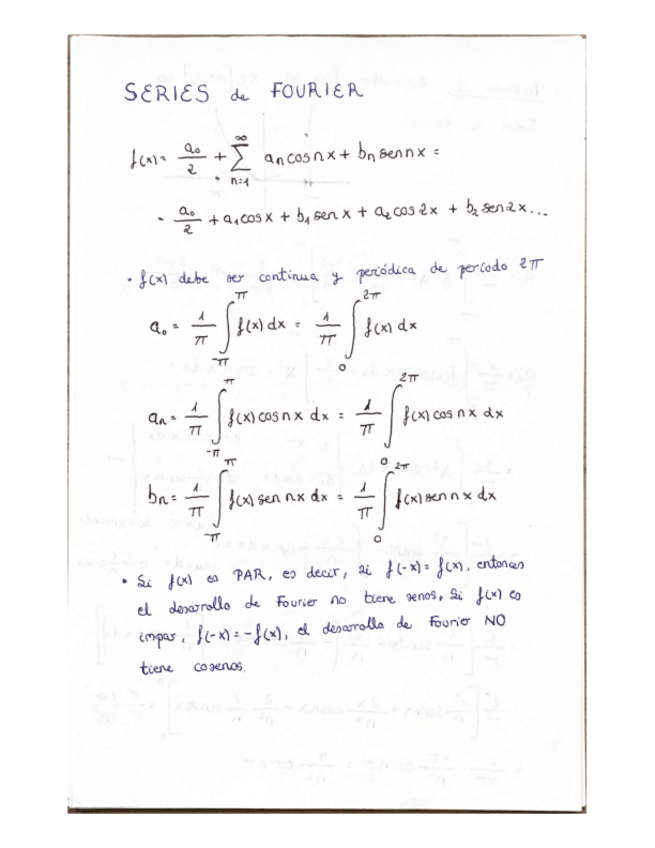 SERIES de FOURIER
f(x) = a₀/2 + ∑_{n=1}^{∞} aₙ cos nx + bₙ sen nx =
= a₀/2 + a₁ cos x + b₁ sen x + a₂ cos 2x + b₂ sen 2x...
• f(x) debe ser continua y periódica de período 2π
a₀ = 1/π ∫_{-π}^{π} f(x) dx = 1/π ∫_{0}^{2π} f(x) dx
aₙ = 1/π ∫_{-π}^{π} f(x) cos nx dx = 1/π ∫_{0}^{2π} f(x) cos nx dx
bₙ = 1/π ∫_{-π}^{π} f(x) sen nx dx = 1/π ∫_{0}^{2π} f(x) sen nx dx
• Si f(x) es PAR, es decir, si f(-x) = f(x), entonces
el desarrollo de Fourier no tiene senos. Si f(x) es
impar, f(-x) = -f(x), el desarrollo de Fourier NO
tiene cosenos.